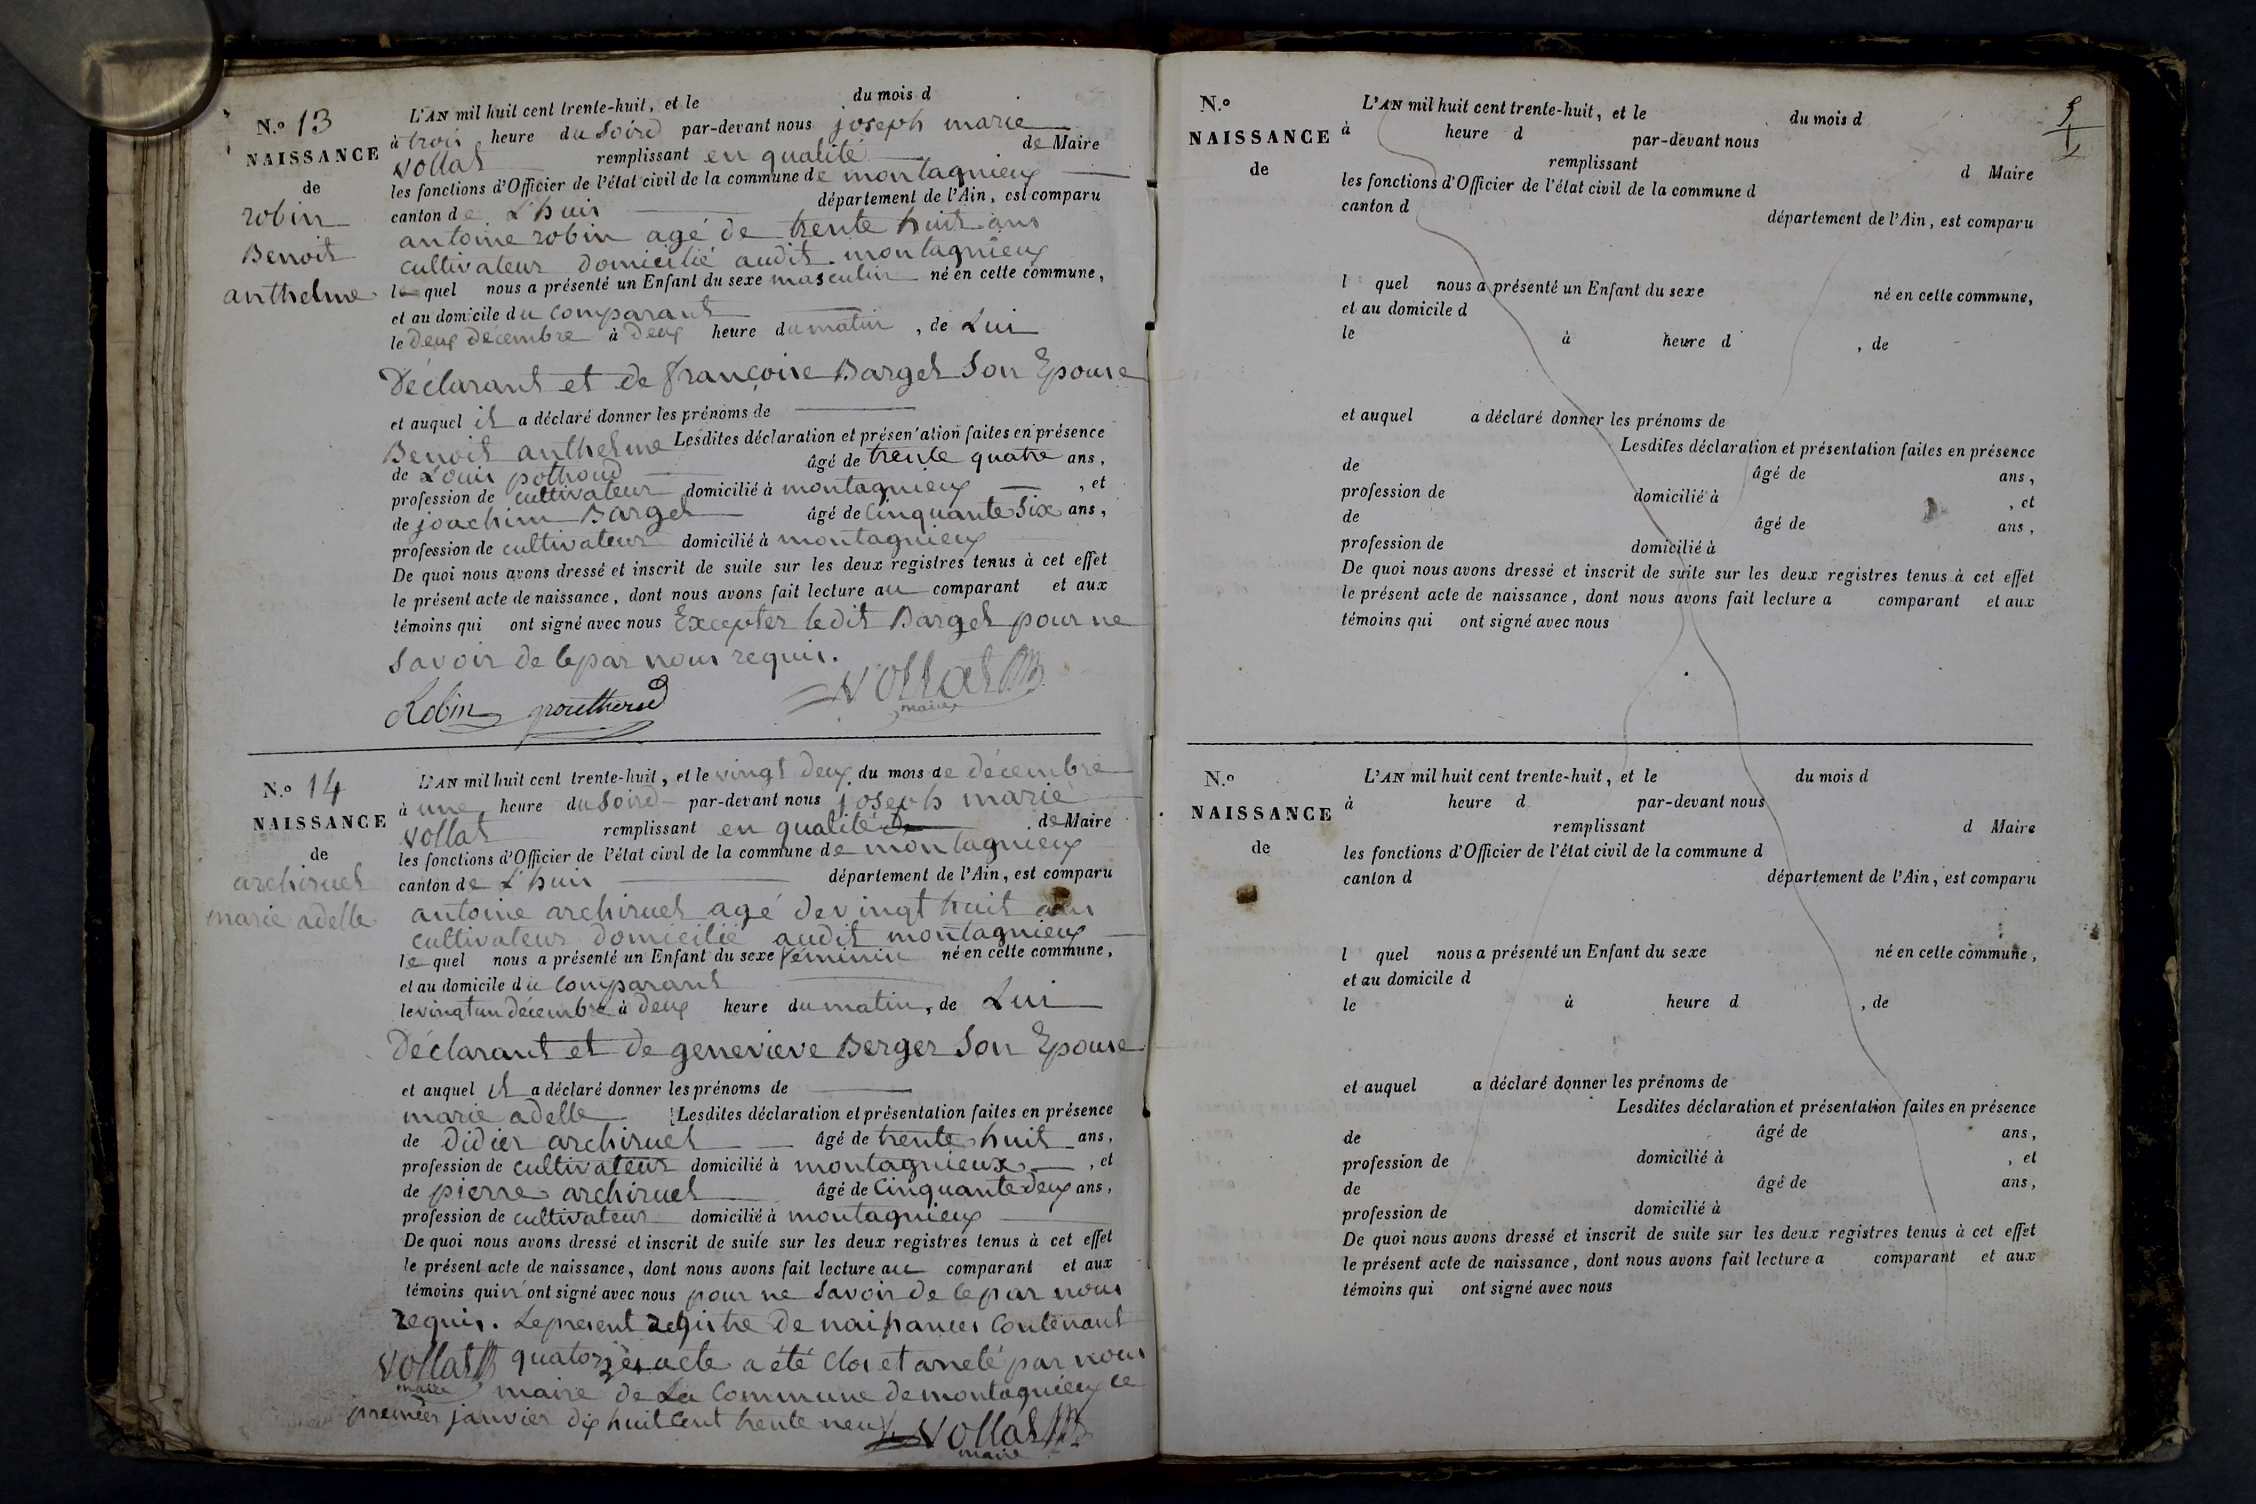 N.º 13
NAISSANCE
de
robin
Benoit
anthelme
L'AN mil huit cent trente-huit, et le du mois d
à trois heure du Soird par-devant nous joseph marie
vollat remplissant en qualité de Maire
les fonctions d'Officier de l'état civil de la commune de montagnieux
canton de L'huis département de l'Ain, est comparu
antoine robin agé de trente huit ans
cultivateur domicilié audit montagnieux
lequel nous a présenté un Enfant du sexe masculin né en cette commune,
et au domicile du Comparant
le deux décembre à deux heure du matin, de Lui
Déclarant et de françoise Barget Son Epouse
et auquel il a déclaré donner les prénoms de
Benoit anthelme Lesdites déclaration et présentation faites en présence
de Louis pothoud âgé de trente quatre ans,
profession de cultivateur domicilié à montagnieux, et
de joachim Barget âgé de Cinquante Six ans,
profession de cultivateur domicilié à montagnieux
De quoi nous avons dressé et inscrit de suite sur les deux registres tenus à cet effet
le présent acte de naissance, dont nous avons fait lecture au comparant et aux
témoins qui ont signé avec nous Excepter ledit Barget pour ne
Savoir de ce par nous requis.
Robin pouthoud vollat
maire
N.º 14
NAISSANCE
de
archiruel
marie adelle
L'AN mil huit cent trente-huit, et le vingt deux du mois de décembre
à une heure du Soird par-devant nous joseph marie
vollat remplissant en qualité de Maire
les fonctions d'Officier de l'état civil de la commune de montagnieux
canton de L'huis département de l'Ain, est comparu
antoine archiruel agé de vingt huit ans
cultivateur domicilié audit montagnieux
lequel nous a présenté un Enfant du sexe féminin né en cette commune,
et au domicile du Comparant
le vingt un décembre à deux heure du matin, de Lui
Déclarant et de genevieve Berger Son Epouse
et auquel il a déclaré donner les prénoms de
marie adelle Lesdites déclaration et présentation faites en présence
de didier archiruel âgé de trente huit ans,
profession de cultivateur domicilié à montagnieux, et
de pierre archiruel âgé de Cinquante deux ans,
profession de cultivateur domicilié à montagnieux
De quoi nous avons dressé et inscrit de suite sur les deux registres tenus à cet effet
le présent acte de naissance, dont nous avons fait lecture au comparant et aux
témoins qui n'ont signé avec nous pour ne Savoir de ce par nous
requis. Le present registre de naissances Contenant
vollat quatorze acte a été Clos et areté par nous
maire maire de La Commune de montagnieux ce
premier janvier dix huit Cent trente neuf. vollat
maire
N.º
NAISSANCE
de
L'AN mil huit cent trente-huit, et le du mois d
à heure d par-devant nous
remplissant d Maire
les fonctions d'Officier de l'état civil de la commune d
canton d département de l'Ain, est comparu
l quel nous a présenté un Enfant du sexe né en cette commune,
et au domicile d
le à heure d , de
et auquel a déclaré donner les prénoms de
Lesdites déclaration et présentation faites en présence
de âgé de ans,
profession de domicilié à , et
de âgé de ans,
profession de domicilié à
De quoi nous avons dressé et inscrit de suite sur les deux registres tenus à cet effet
le présent acte de naissance, dont nous avons fait lecture a comparant et aux
témoins qui ont signé avec nous
N.º
NAISSANCE
de
L'AN mil huit cent trente-huit, et le du mois d
à heure d par-devant nous
remplissant d Maire
les fonctions d'Officier de l'état civil de la commune d
canton d département de l'Ain, est comparu
l quel nous a présenté un Enfant du sexe né en cette commune,
et au domicile d
le à heure d , de
et auquel a déclaré donner les prénoms de
Lesdites déclaration et présentation faites en présence
de âgé de ans,
profession de domicilié à , et
de âgé de ans,
profession de domicilié à
De quoi nous avons dressé et inscrit de suite sur les deux registres tenus à cet effet
le présent acte de naissance, dont nous avons fait lecture a comparant et aux
témoins qui ont signé avec nous